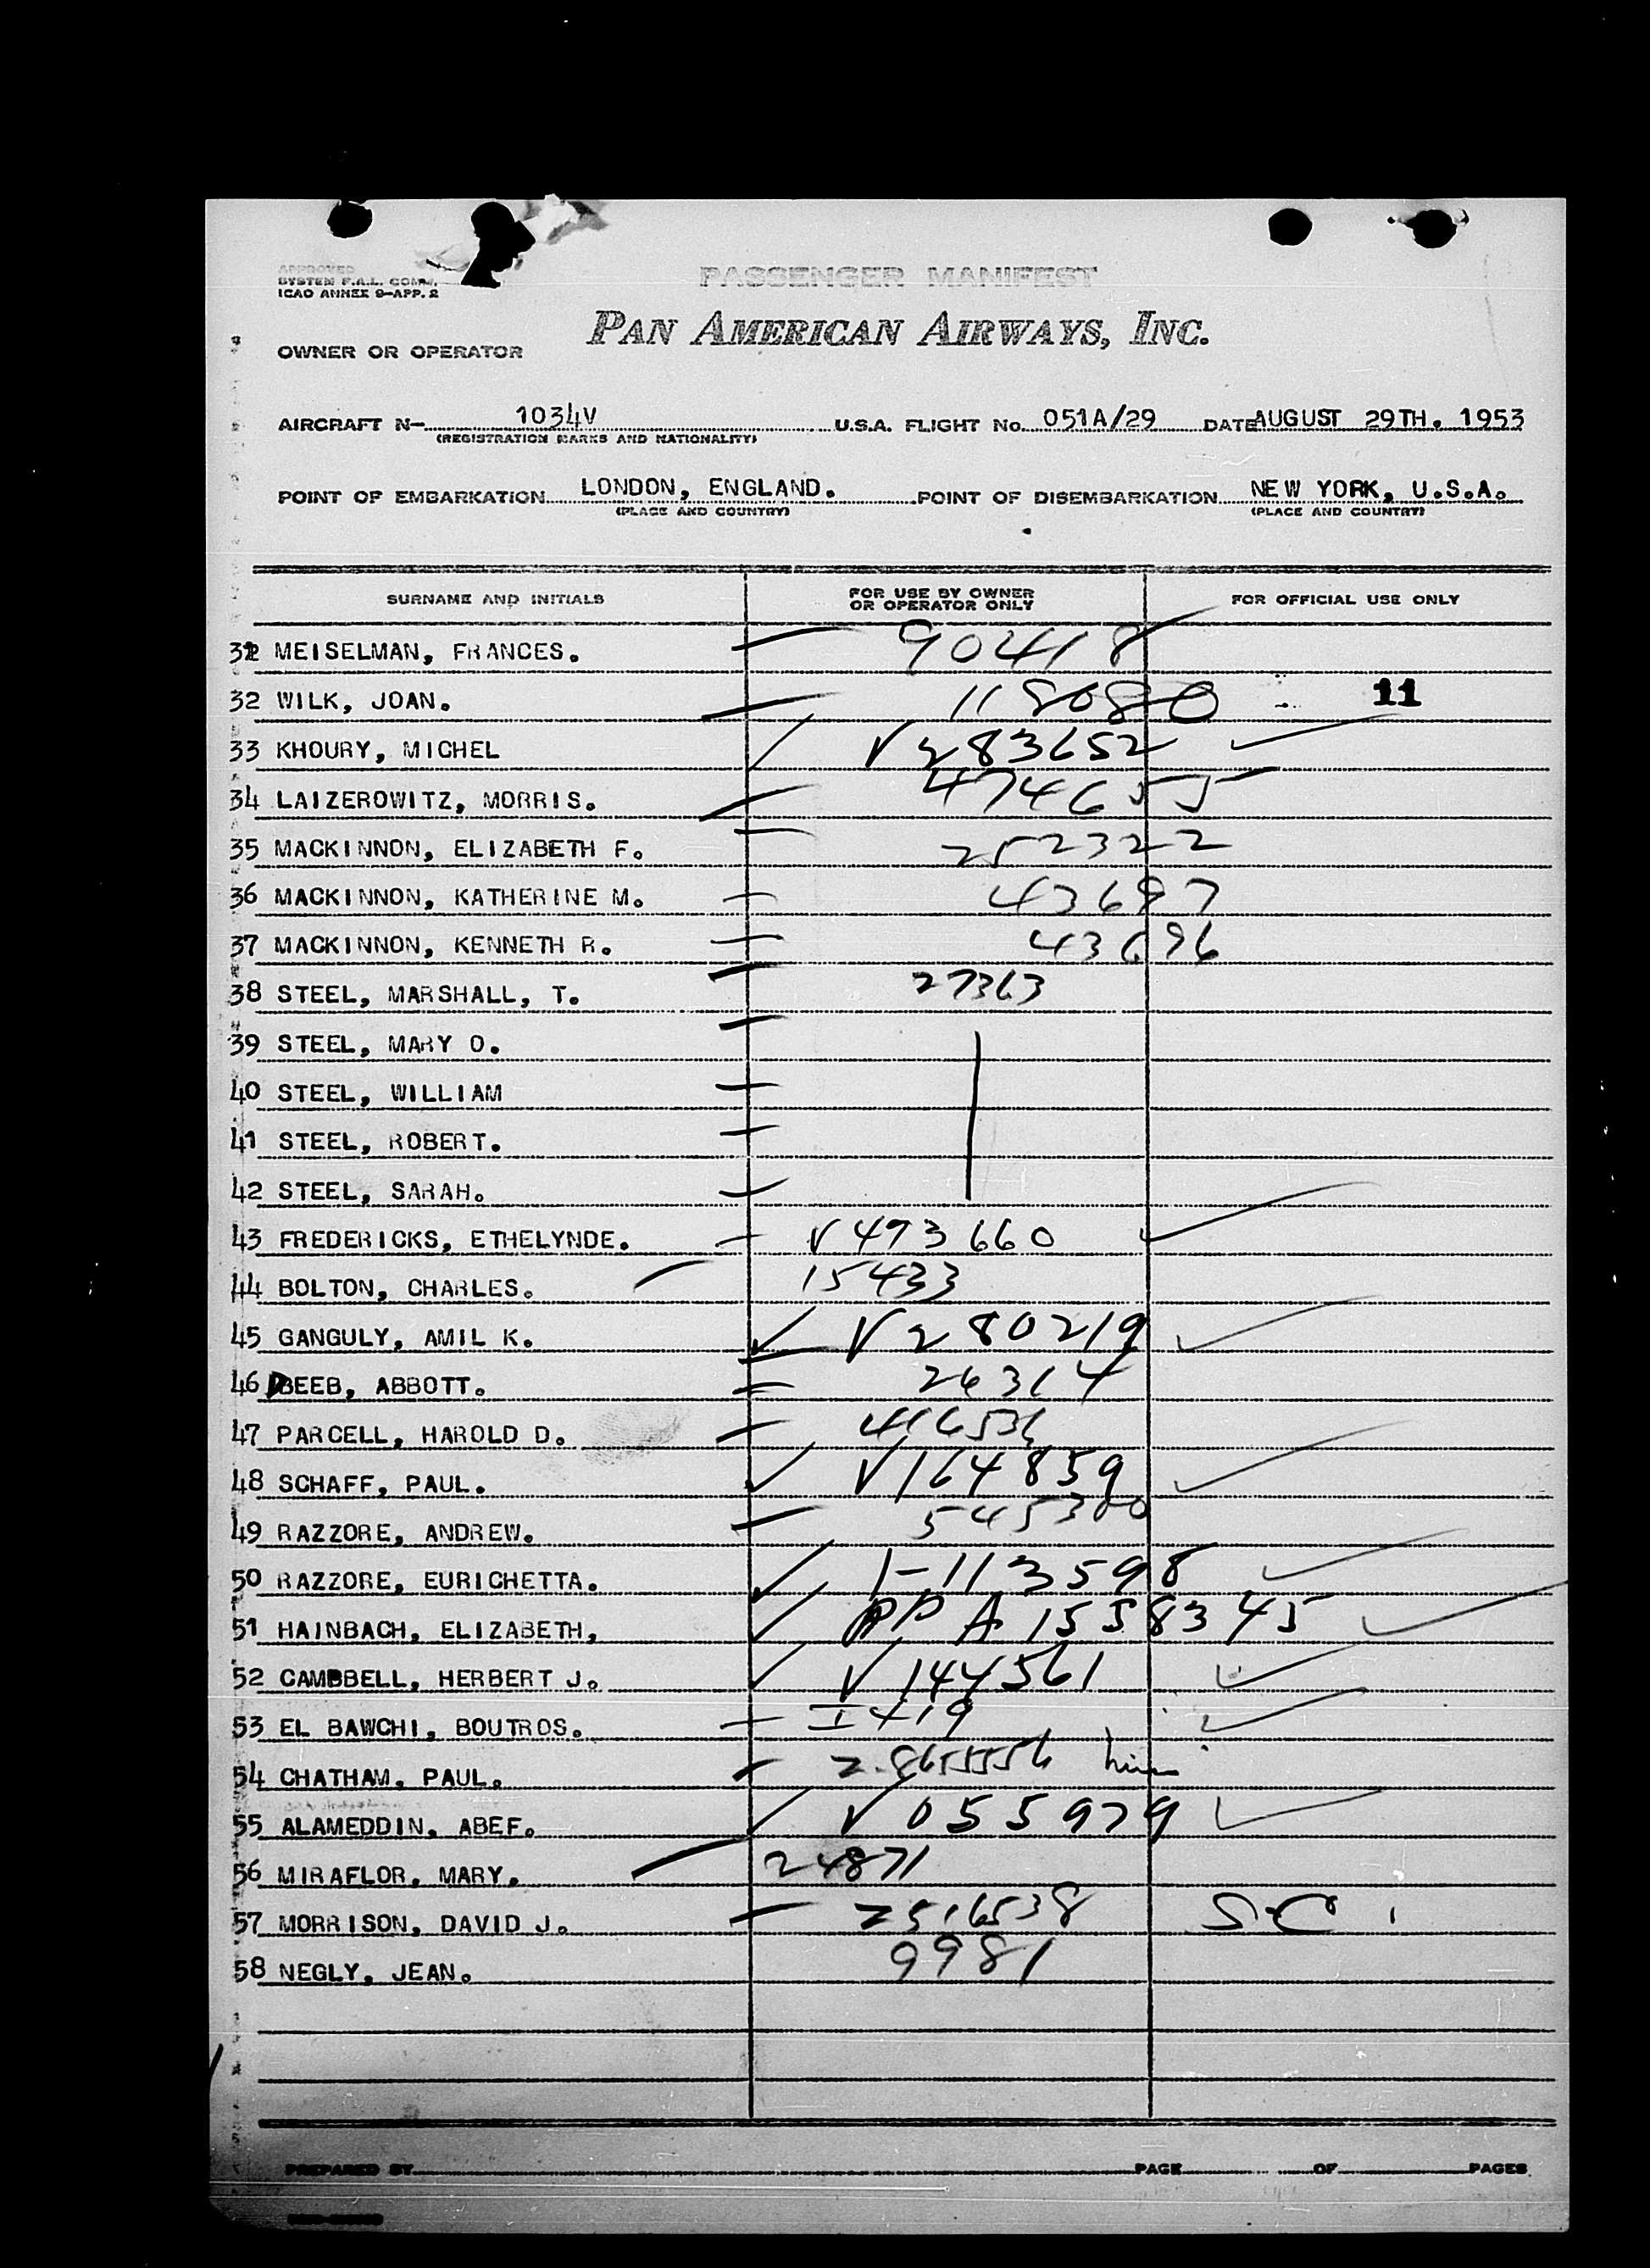 APPROVED
SYSTEM F.A.L. COM.
ICAO ANNEX 9-APP. 2
PASSENGER MANIFEST
PAN AMERICAN AIRWAYS, INC.
OWNER OR OPERATOR
AIRCRAFT N- 1034V U.S.A. FLIGHT No. 051A/29 DATE AUGUST 29TH. 1953
(REGISTRATION MARKS AND NATIONALITY)
POINT OF EMBARKATION LONDON, ENGLAND. POINT OF DISEMBARKATION NEW YORK, U.S.A.
(PLACE AND COUNTRY) (PLACE AND COUNTRY)
SURNAME AND INITIALS FOR USE BY OWNER OR OPERATOR ONLY FOR OFFICIAL USE ONLY
31 MEISELMAN, FRANCES. 90418
32 WILK, JOAN. 118080 11
33 KHOURY, MICHEL V283652
34 LAIZEROWITZ, MORRIS. 474655
35 MACKINNON, ELIZABETH F. 252322
36 MACKINNON, KATHERINE M. 43697
37 MACKINNON, KENNETH R. 43696
38 STEEL, MARSHALL, T. 27363
39 STEEL, MARY O.
40 STEEL, WILLIAM
41 STEEL, ROBERT.
42 STEEL, SARAH.
43 FREDERICKS, ETHELYNDE. V493660
44 BOLTON, CHARLES. 15433
45 GANGULY, AMIL K. V280219
46 BEEB, ABBOTT. 26314
47 PARCELL, HAROLD D. 416536
48 SCHAFF, PAUL. V164859
49 RAZZORE, ANDREW. 545300
50 RAZZORE, EURICHETTA. 1-113598
51 HAINBACH, ELIZABETH, PP A 1558345
52 CAMBBELL, HERBERT J. V144561
53 EL BAWCHI, BOUTROS. I 419
54 CHATHAM, PAUL.
55 ALAMEDDIN, ABEF. V055979
56 MIRAFLOR, MARY. 24871
57 MORRISON, DAVID J. 2516538 S-C
58 NEGLY, JEAN. 9981
PREPARED BY PAGE OF PAGES